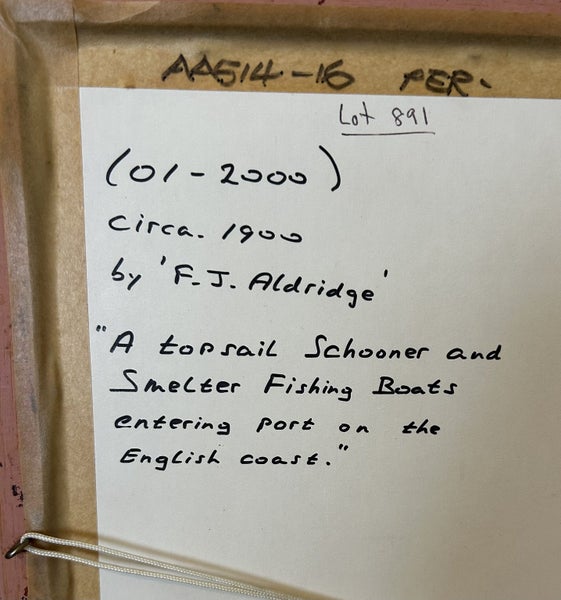 AA514-16 PER-
Lot 891
(01-2000)
Circa. 1900
by 'F.J. Aldridge'
"A topsail Schooner and
Smelter Fishing Boats
entering port on the
English coast."